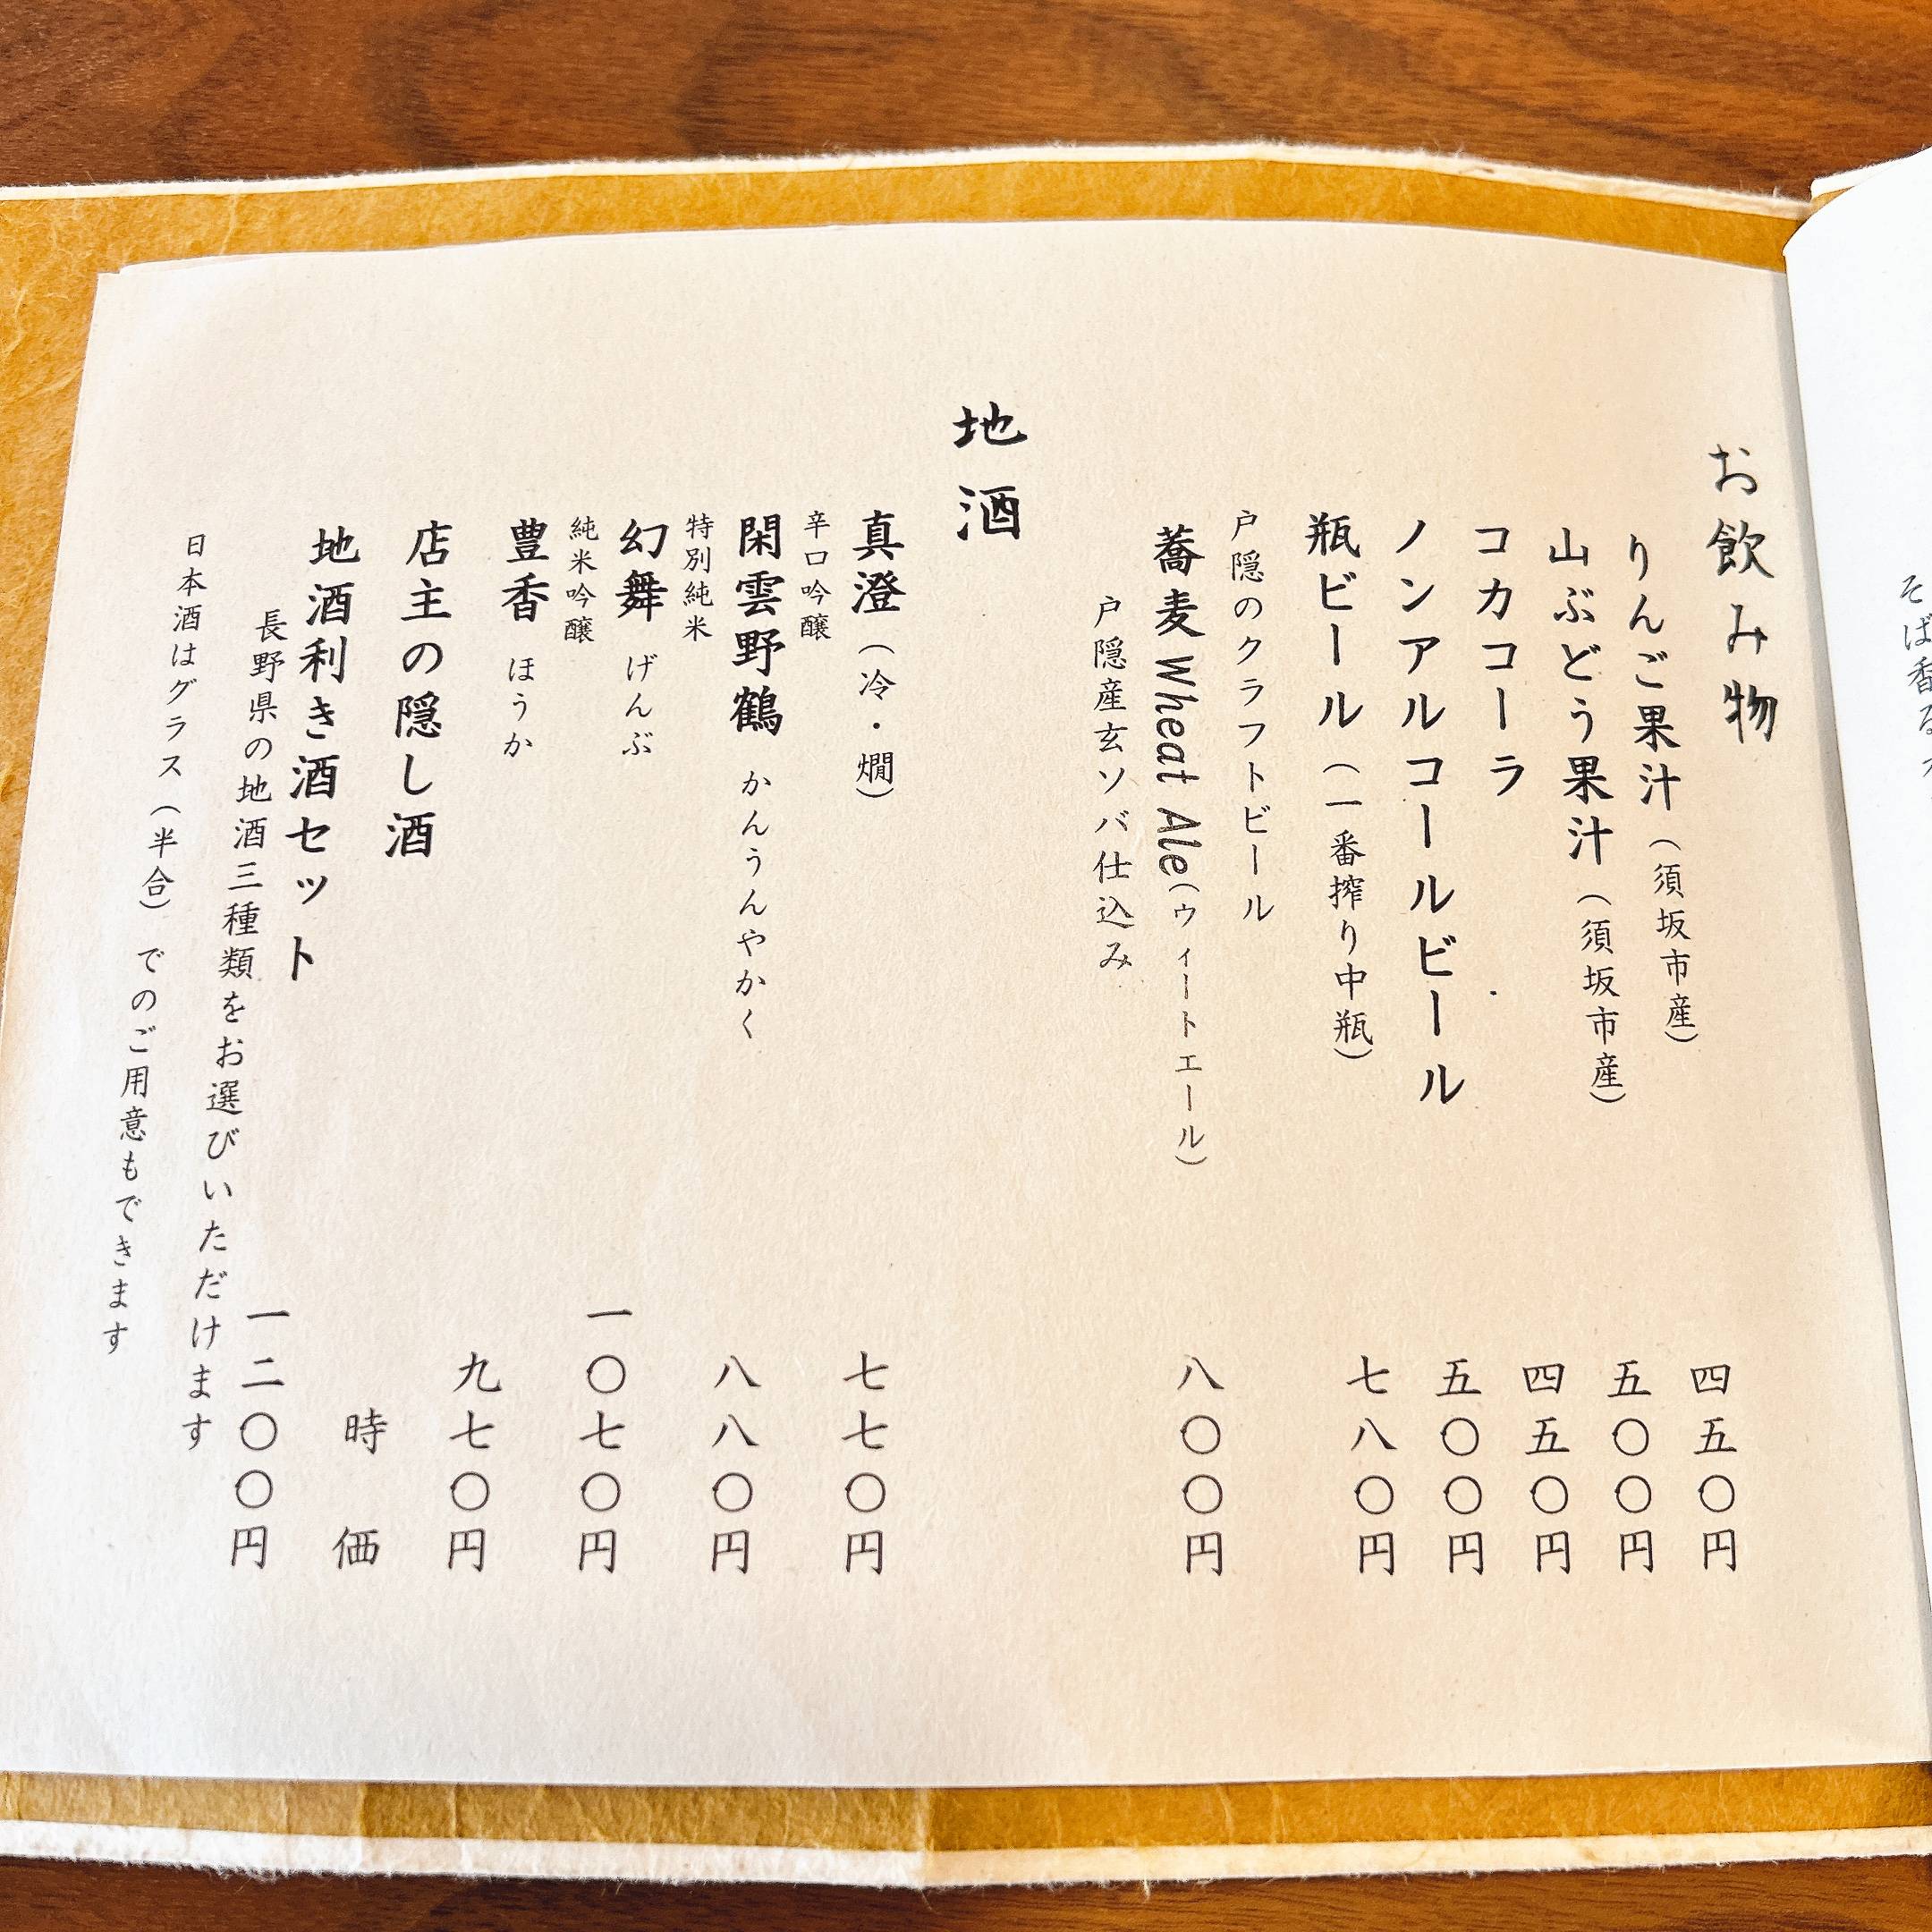 そば香る
お飲み物
りんご果汁（須坂市産） 四五〇円
山ぶどう果汁（須坂市産） 五〇〇円
コカコーラ 四五〇円
ノンアルコールビール 五〇〇円
瓶ビール（一番搾り中瓶） 七八〇円
戸隠のクラフトビール
蕎麦 Wheat Ale（ウィートエール） 八〇〇円
戸隠産玄ソバ仕込み
地酒
真澄（冷・燗） 七七〇円
辛口吟醸
閑雲野鶴 かんうんやかく 八八〇円
特別純米
幻舞 げんぶ 一〇七〇円
純米吟醸
豊香 ほうか 九七〇円
店主の隠し酒 時価
地酒利き酒セット 一二〇〇円
長野県の地酒三種類をお選びいただけます
日本酒はグラス（半合）でのご用意もできます